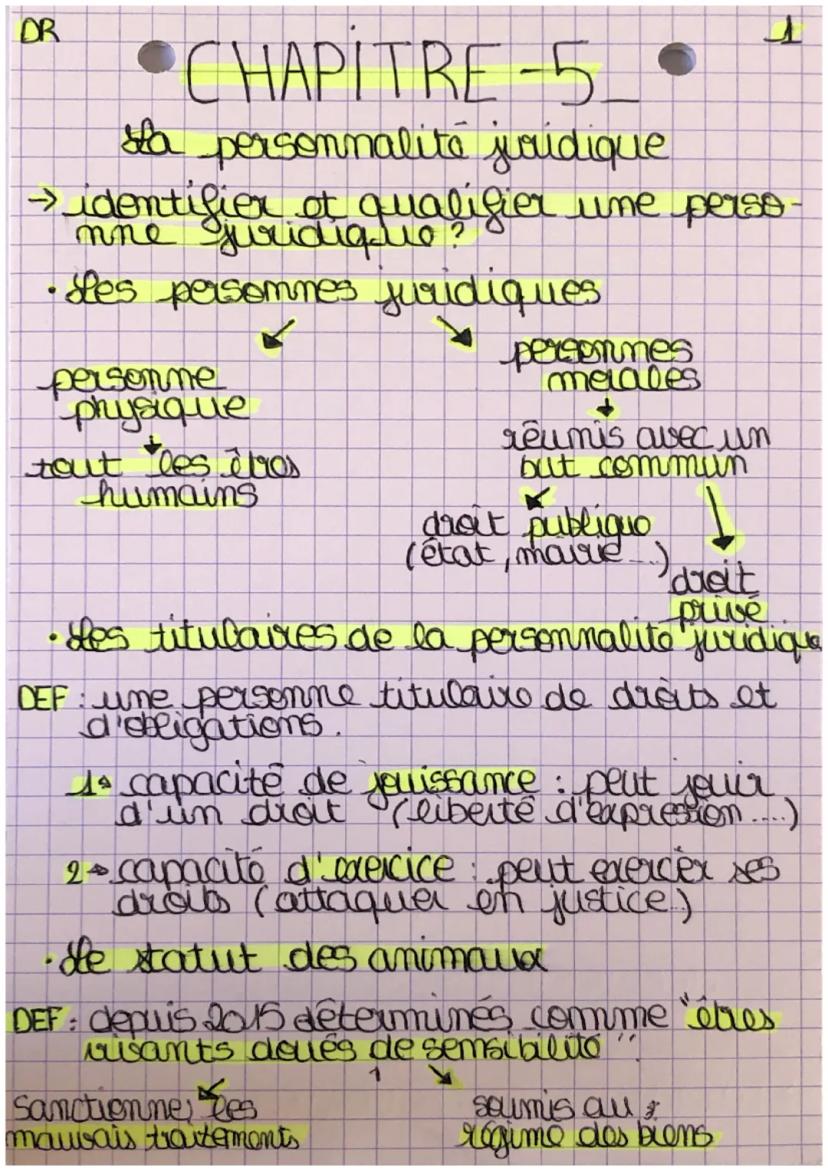 DR
1
CHAPITRE - 5_
La personnalité juridique
→ identifier et qualifier une perso-
nne juridique ?
• Les personnes juridiques
personne
physique
tout les êtres
humains
personnes
morales
réunis avec un
but commun
droit publique
(état, mairie...)
droit
privé
• Les titulaires de la personnalité juridique
DEF : une personne titulaire de droits et
d'obligations.
1→ capacité de jouissance : peut jouir
d'un droit (liberté d'expression....)
2→ capacité d'exercice : peut exercer ses
droits (attaquer en justice..)
• Le statut des animaux
DEF : depuis 2015 déterminés comme "êtres
vivants doués de sensibilité".
1
Sanctionne les
mauvais traitements
soumis au
régime des biens